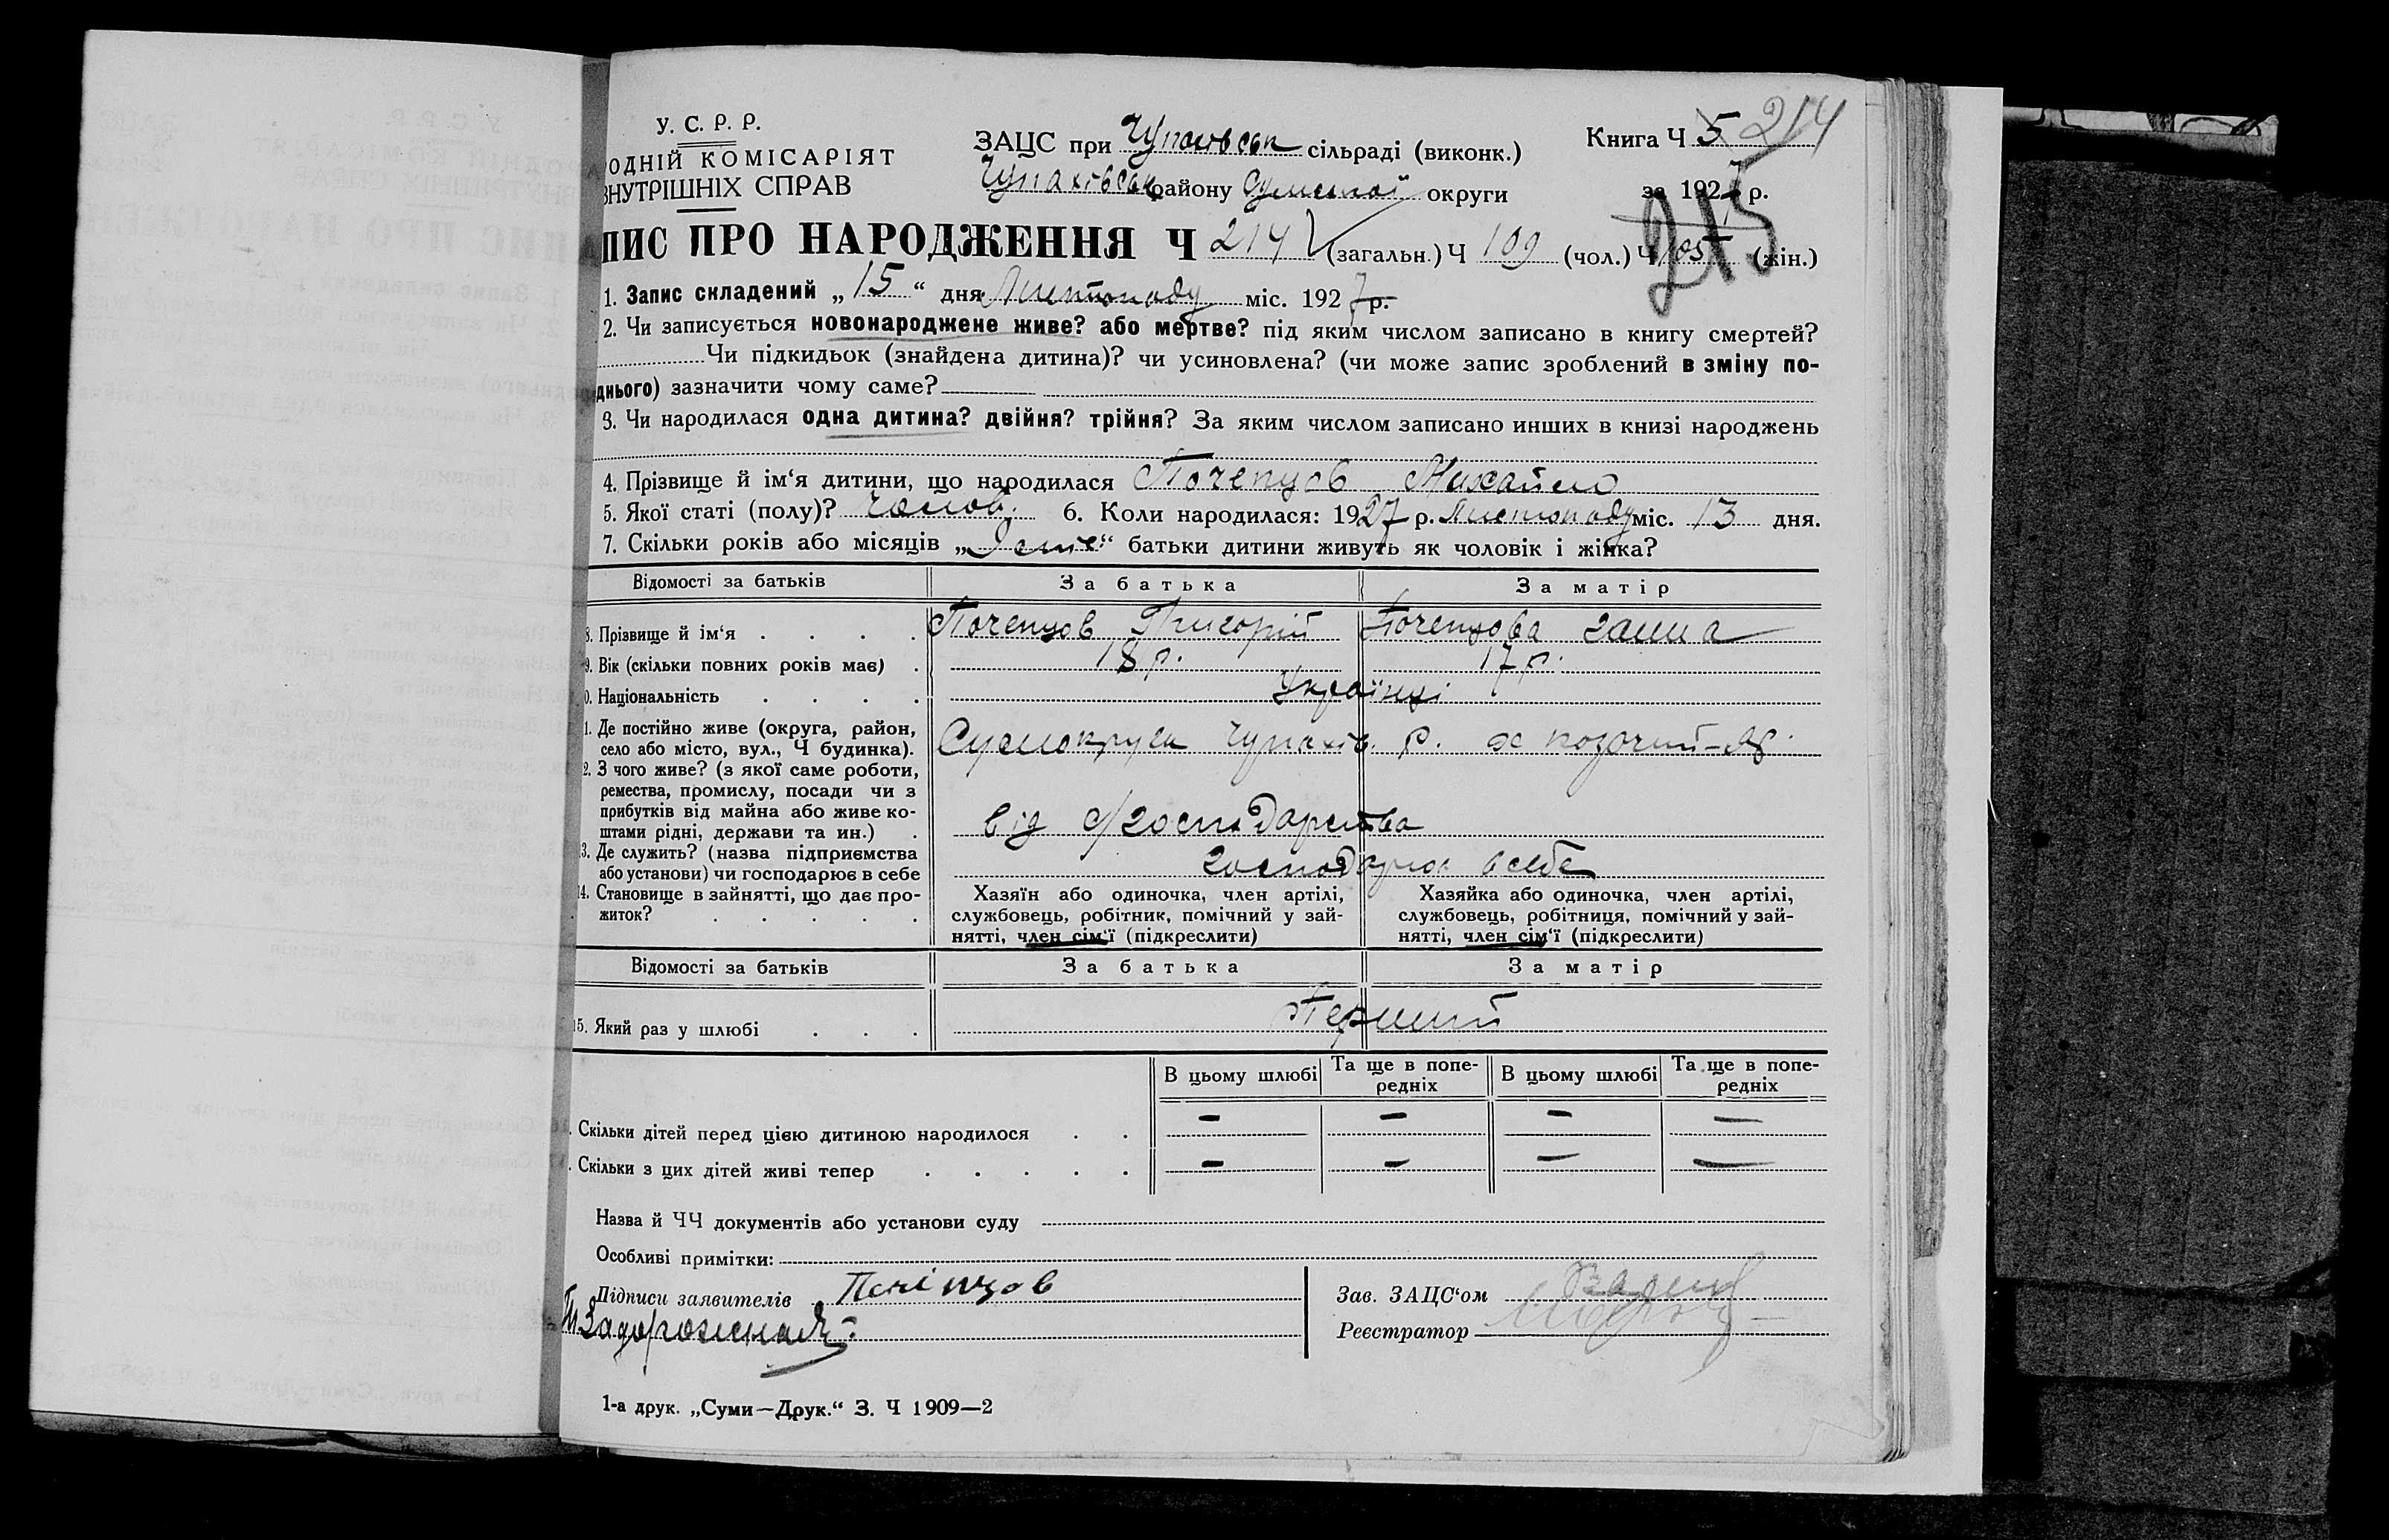 У. С. Р. Р.
ОДНІЙ КОМІСАРІЯТ
ВНУТРІШНІХ СПРАВ
ЗАЦС при Чупахівськ сільраді (виконк.)
Чупахівськ району Сумської округи
Книга Ч 5 214
за 1927 р.
215
ПИС ПРО НАРОДЖЕННЯ Ч 214 (загальн.) Ч 109 (чол.) Ч 105 (жін.)
1. Запис складений „15“ дня Листопаду міс. 1927 р.
2. Чи записується новонароджене живе? або мертве? під яким числом записано в книгу смертей?
Чи підкидьок (знайдена дитина)? чи усиновлена? (чи може запис зроблений в зміну по-
днього) зазначити чому саме?
3. Чи народилася одна дитина? двійня? трійня? За яким числом записано инших в книзі народжень
4. Прізвище й ім‘я дитини, що народилася Почепцов Михайло
5. Якої статі (полу)? чолов. 6. Коли народилася: 1927 р. Листопаду міс. 13 дня.
7. Скільки років або місяців „ “ батьки дитини живуть як чоловік і жінка?
Відомості за батьків За батька За матір
8. Прізвище й ім‘я . . . . Почепцов Григорій Почепцова Ганна
9. Вік (скільки повних років має) . 18 р. 17 р.
0. Національність . . . . Українці
1. Де постійно живе (округа, район,
село або місто, вул., Ч будинка). Сумокруги Чупахів. р. х Козачий-Яр
2. З чого живе? (з якої саме роботи,
ремества, промислу, посади чи з
прибутків від майна або живе ко-
штами рідні, держави та ин.) . від с/господарства
3. Де служить? (назва підприємства
або установи) чи господарює в себе господарює в себе
14. Становище в зайнятті, що дає про-
житок? . . . . .
Хазяїн або одиночка, член артілі,
службовець, робітник, помічний у зай-
нятті, член сім‘ї (підкреслити)
Хазяйка або одиночка, член артілі,
службовець, робітниця, помічний у зай-
нятті, член сім‘ї (підкреслити)
Відомості за батьків За батька За матір
15. Який раз у шлюбі . . . Перший
В цьому шлюбі Та ще в попе-
редніх В цьому шлюбі Та ще в попе-
редніх
. Скільки дітей перед цією дитиною народилося . . — — — —
. Скільки з цих дітей живі тепер . . . . . — — — —
Назва й ЧЧ документів або установи суду
Особливі примітки:
Підписи заявителів Почіпцов
Задорожна
Зав. ЗАЦС‘ом
Реєстратор
1-а друк. „Суми—Друк.“ З. Ч 1909—2